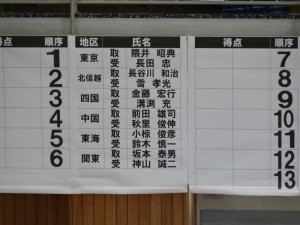 得点 順序 地区 氏名 得点 順序
1 東京 取 隈井 昭典 7
受 長田 忠
2 北信越 取 長谷川 和治 8
受 雪 孝光 9
3 四国 取 金藤 宏行
受 溝渕 充 10
4 中国 取 前田 雄司
受 秋里 俊伸 11
5 東海 取 小椋 俊彦
受 鈴木 慎一 12
6 関東 取 坂本 泰男
受 神山 誠二 13